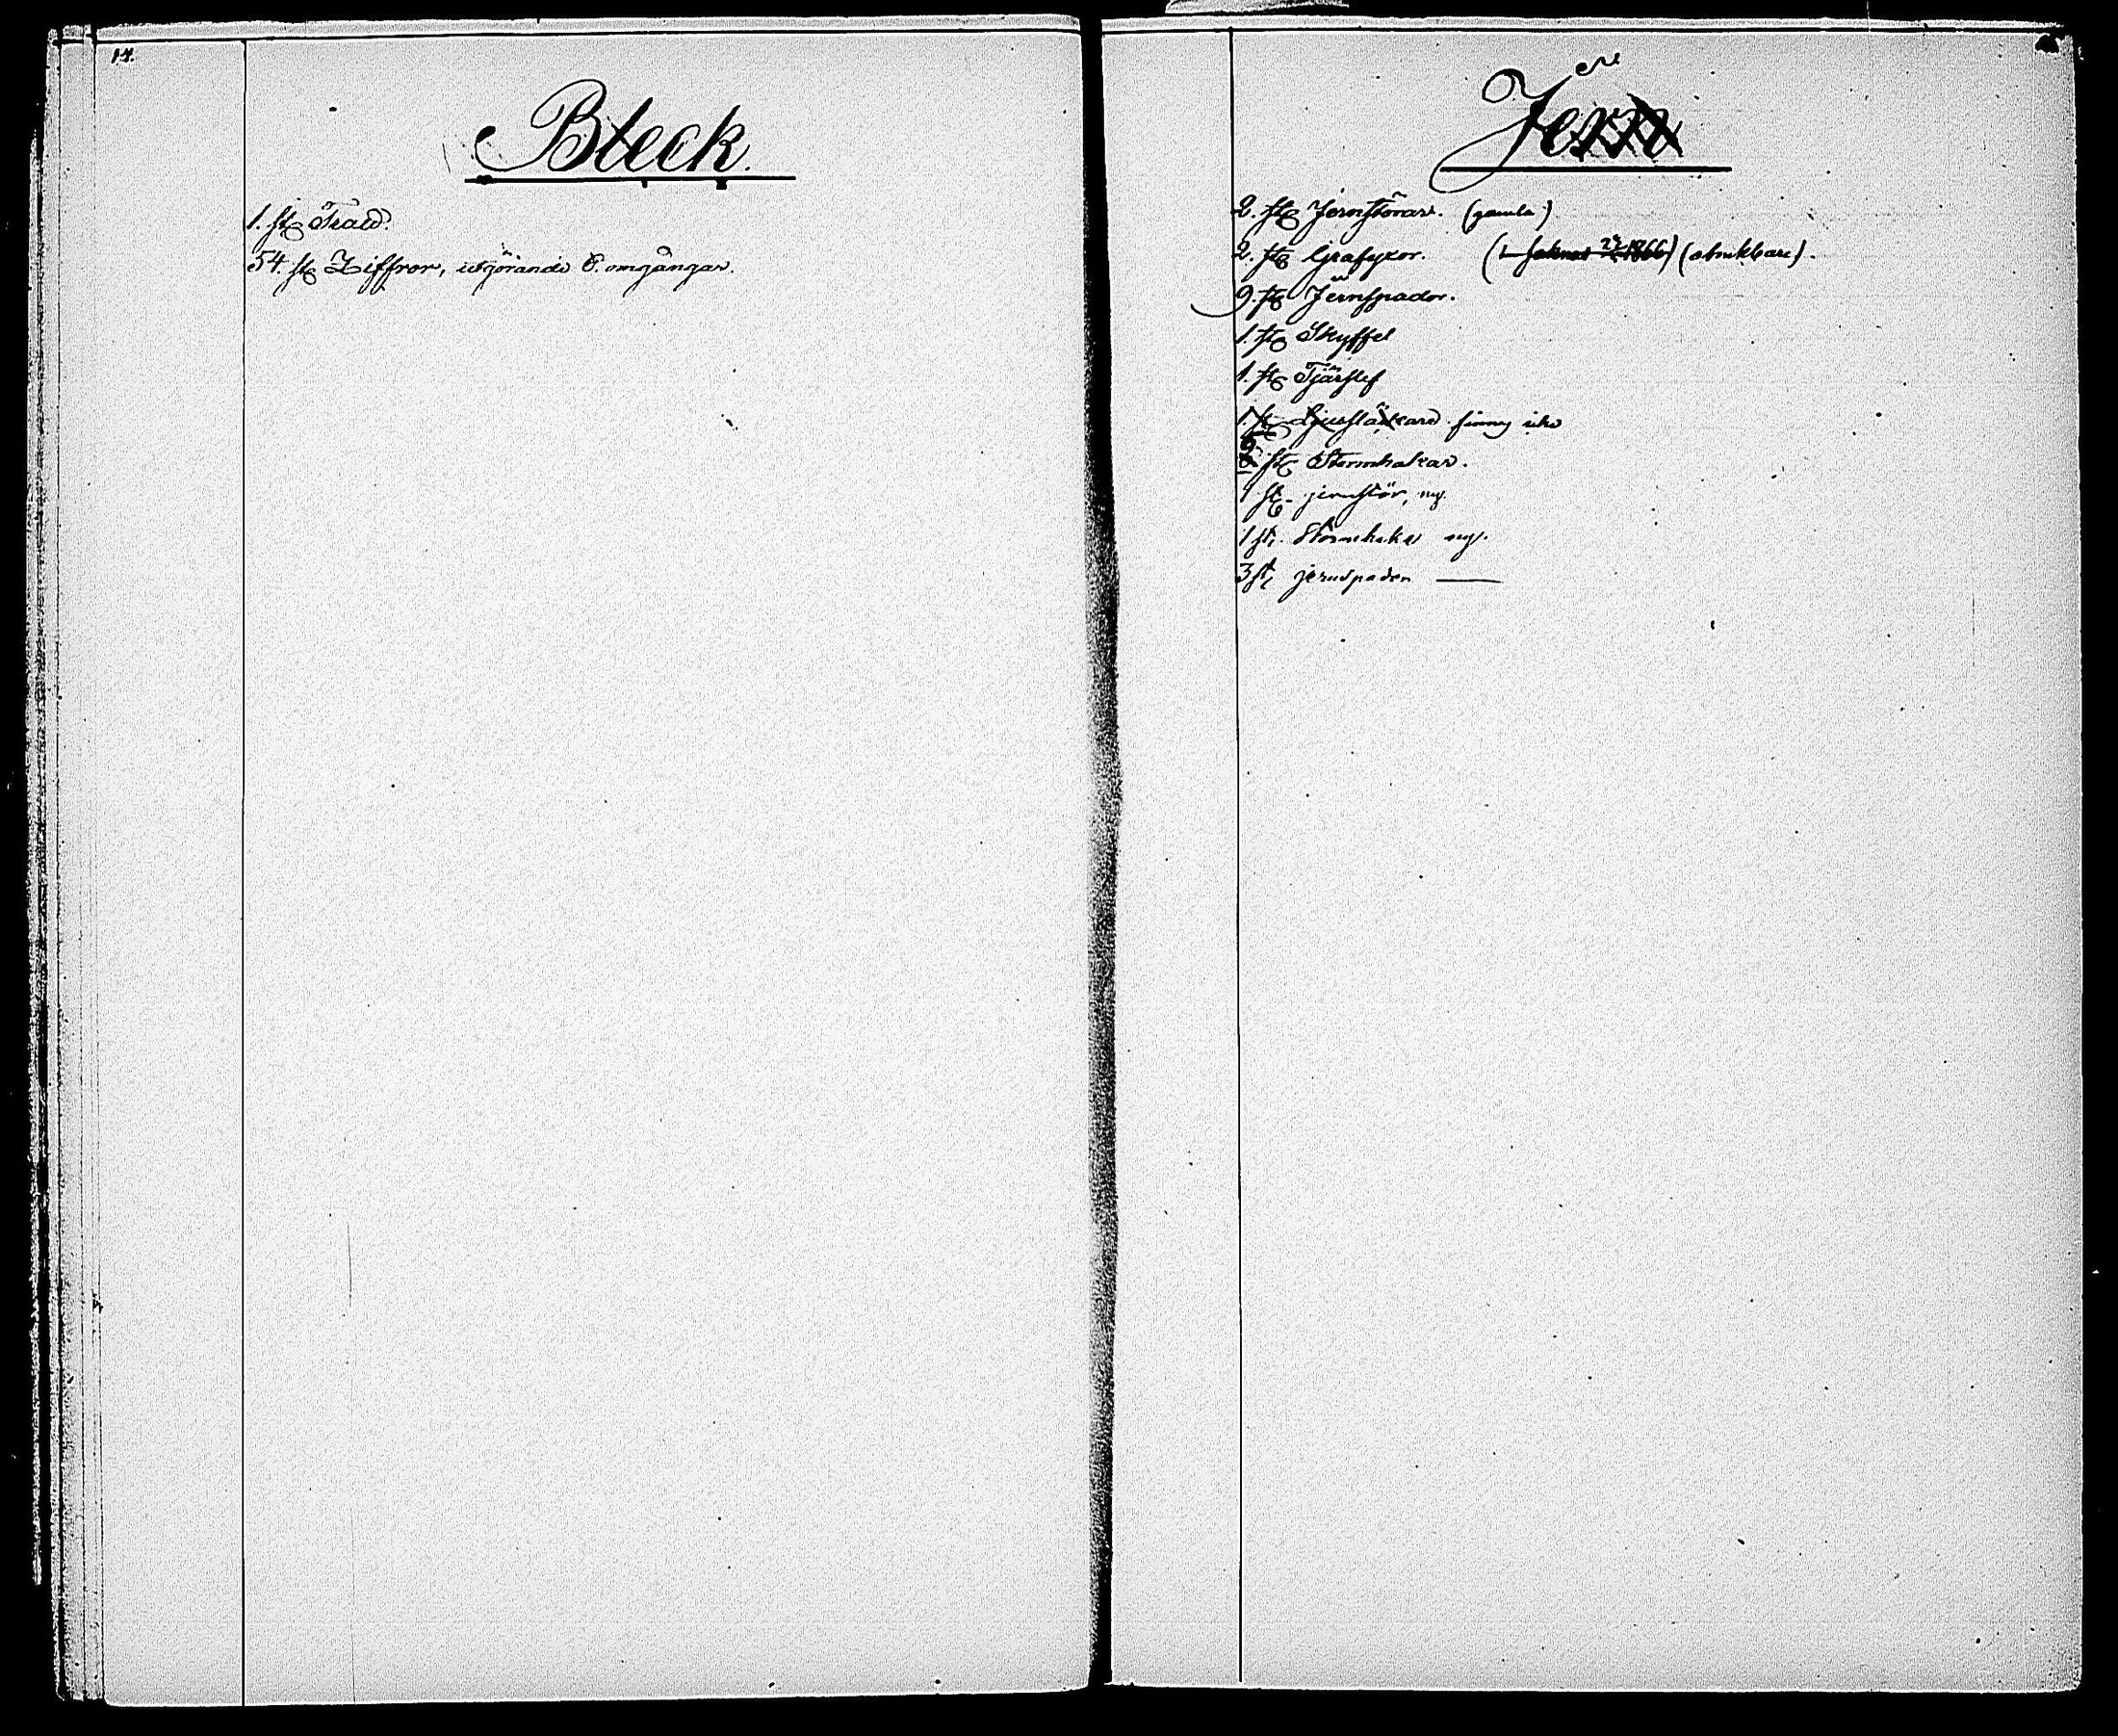 14.
Bleck.
1. st Tratt.
54. st Ziffror, utgörande 6. omgångar.
Jern
2. st Jernstörar. (gamla)
2. st Grafyxor. (1 saknas 1866) (obrukbara).
9. st Jernspador.
1. st Skyffel
1. st Tjärslef
1. st Ljussläckare finns icke
st Stormhakar.
1 st. jernstör, ny.
1 st. Stormhake ny.
3 st jernspador —